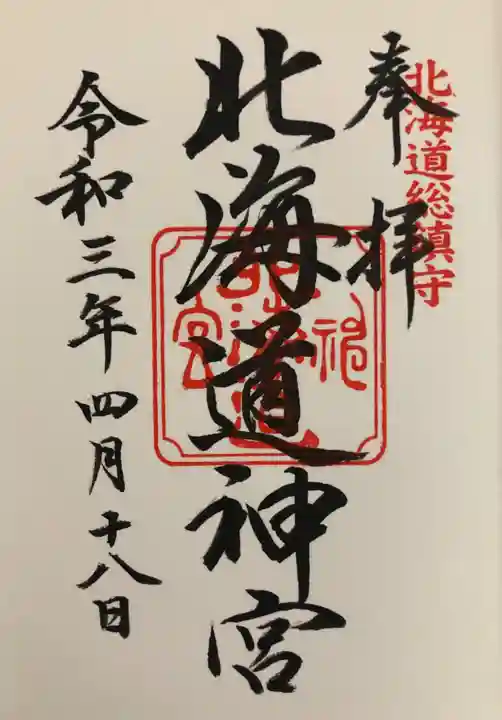 北海道総鎮守
奉拝
北海道神宮
北海道神宮
令和三年四月十八日